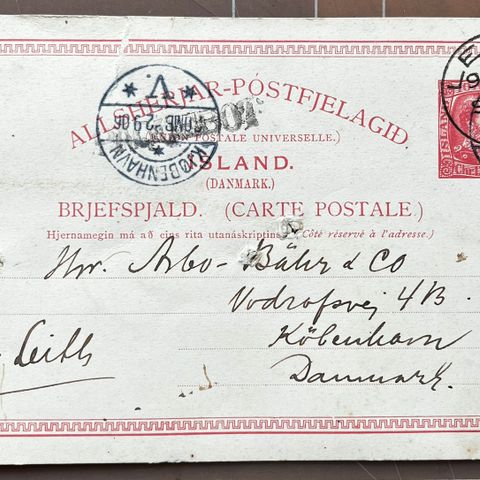 ALLSHERJAR-PÓSTFJELAGIÐ
(UNION POSTALE UNIVERSELLE.)
ÍSLAND.
(DANMARK.)
BRJEFSPJALD. (CARTE POSTALE.)
Hjernamegin má að eins rita utanáskriptina. (Côté réservé à l'adresse.)
KJØBENHAVN
2.9.06
V
ISLAND
Hrr. Arbo-Bähr & CO
Vodrofsvej 4B.
København
Danmark.
Leith